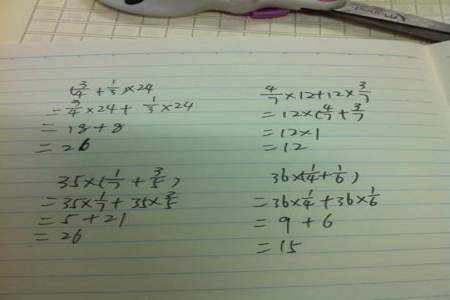 (3/4 + 1/3)×24
= 3/4 ×24 + 1/3 ×24
= 18+8
= 26
4/7 ×12+12× 3/7
= 12×(4/7 + 3/7)
= 12×1
= 12
35×(1/7 + 3/5)
= 35× 1/7 + 35× 3/5
= 5+21
= 26
36×(1/4 + 1/6)
= 36× 1/4 + 36× 1/6
= 9+6
= 15